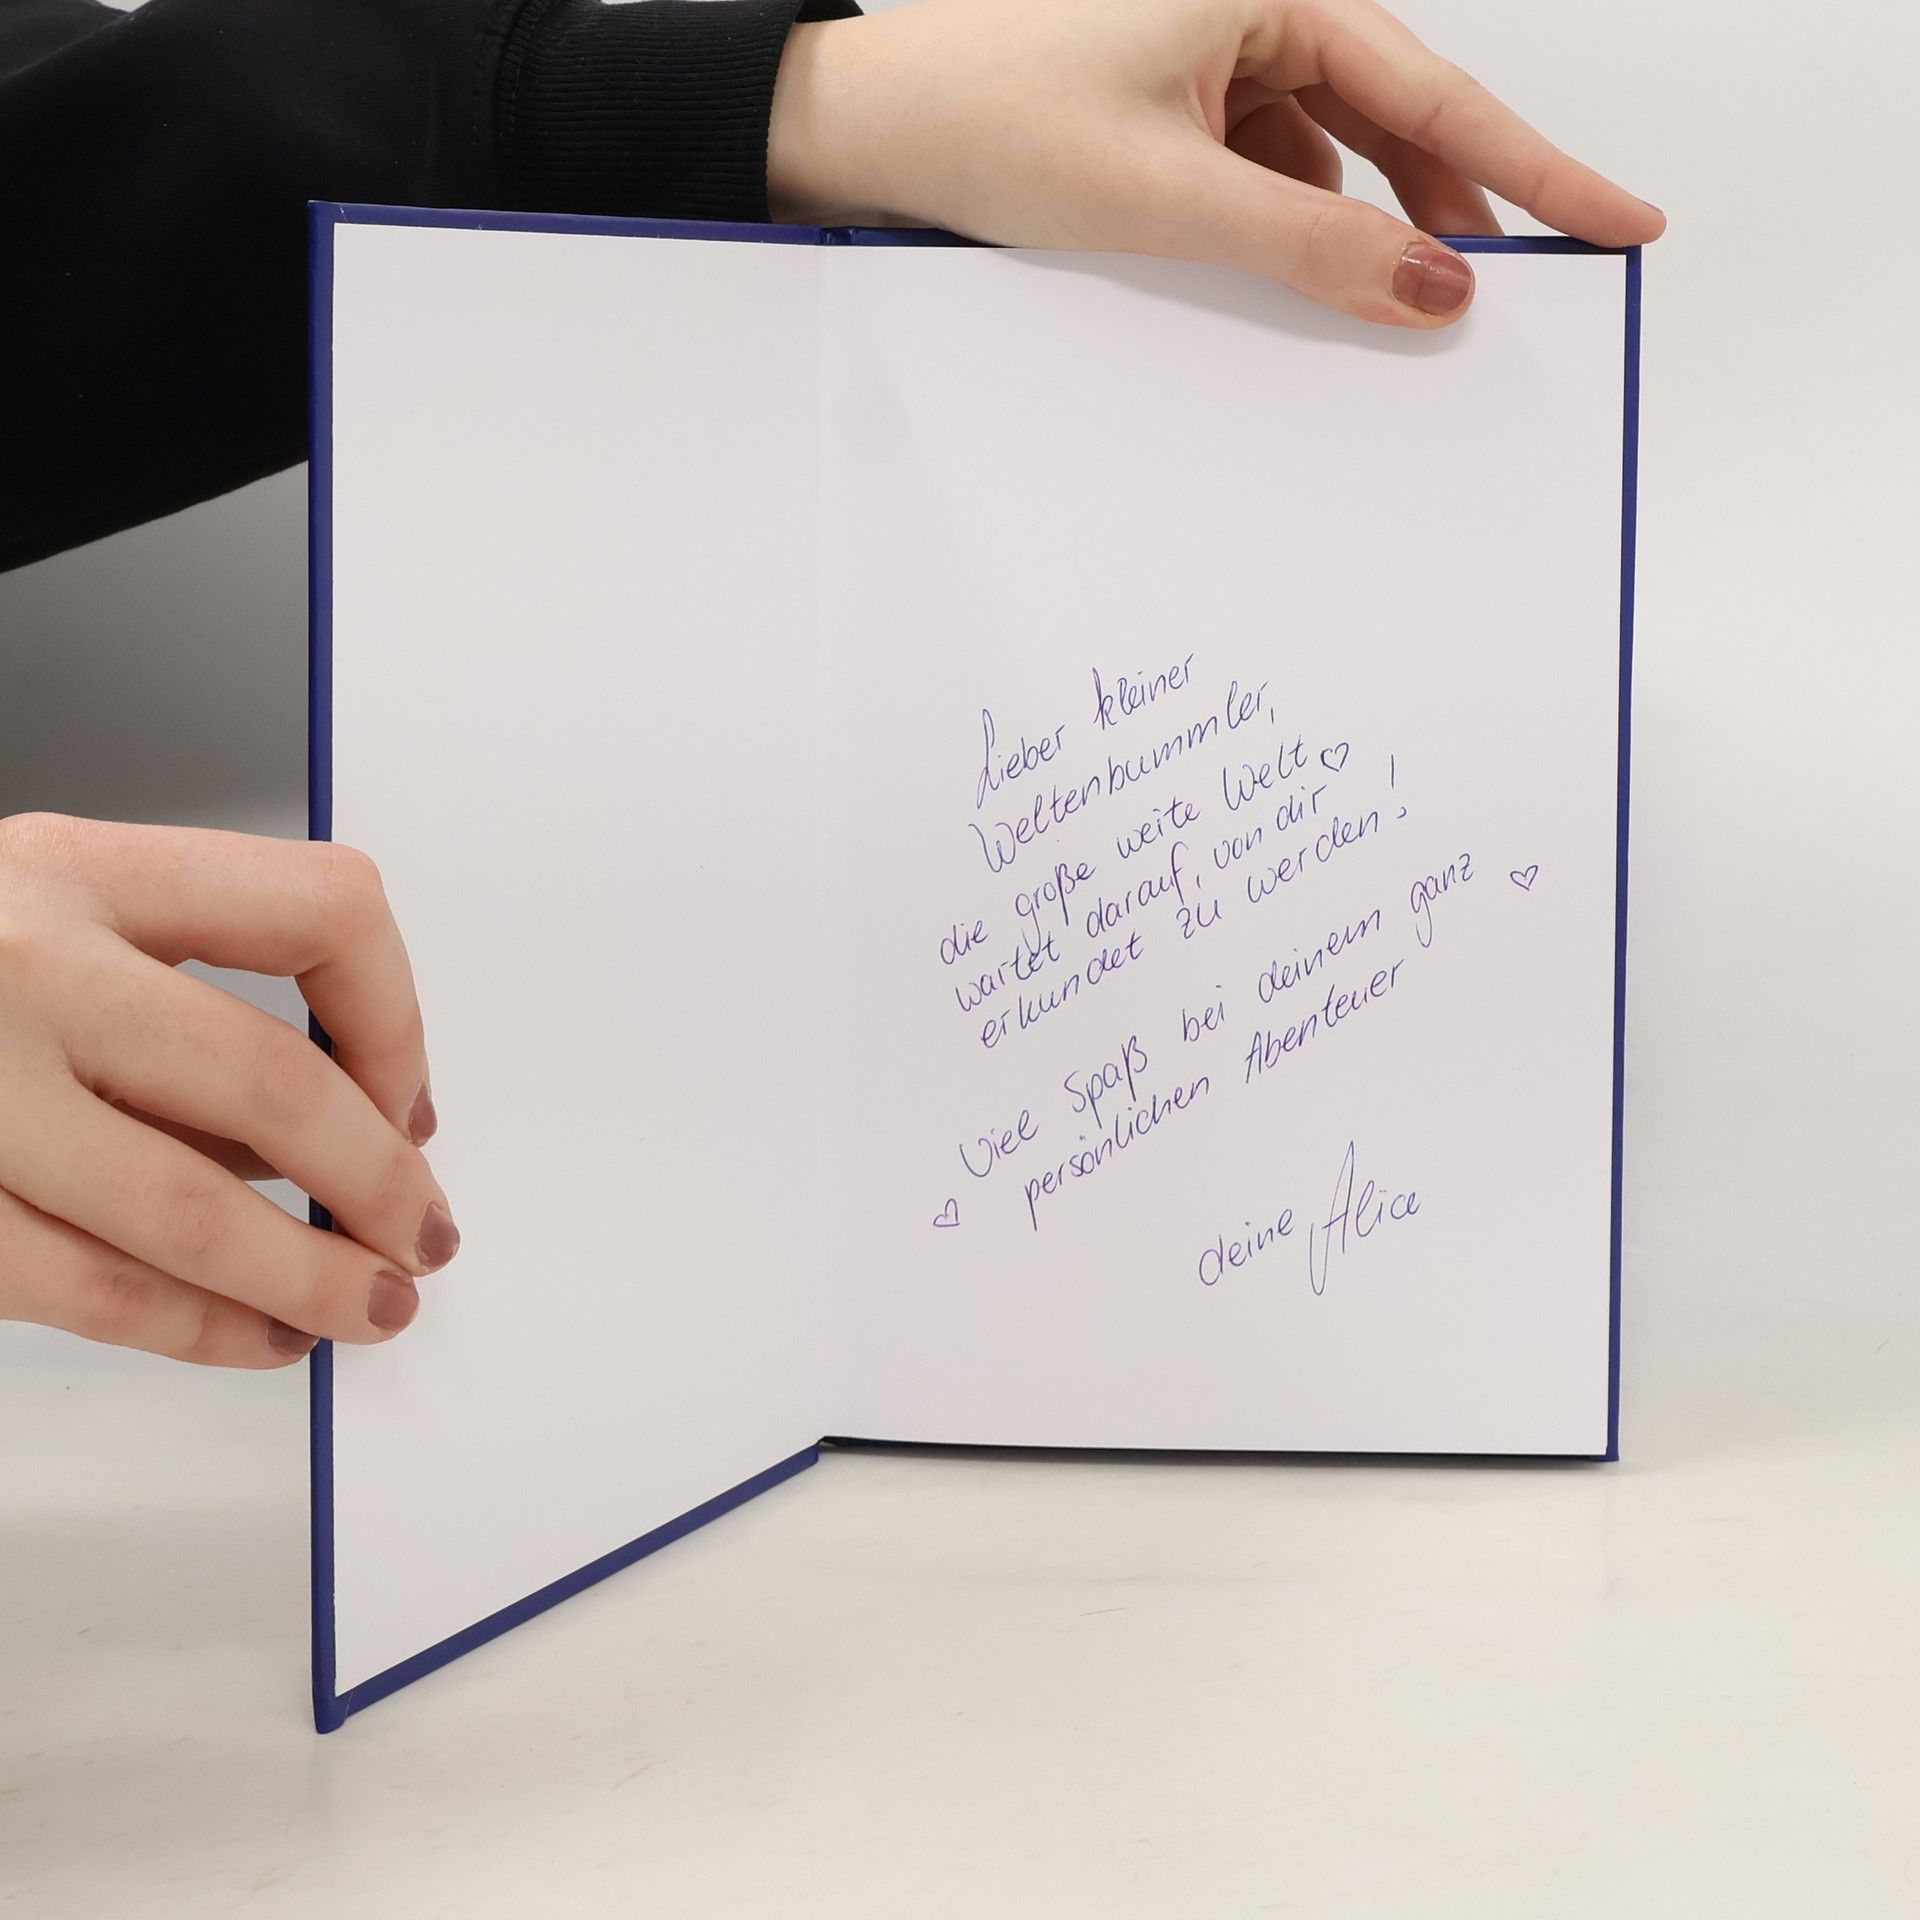 Lieber kleiner
Weltenbummler,
die große weite Welt ♡
wartet darauf, von dir
erkundet zu werden!
Viel Spaß bei deinem ganz ♡
♡ persönlichen Abenteuer
deine Alice